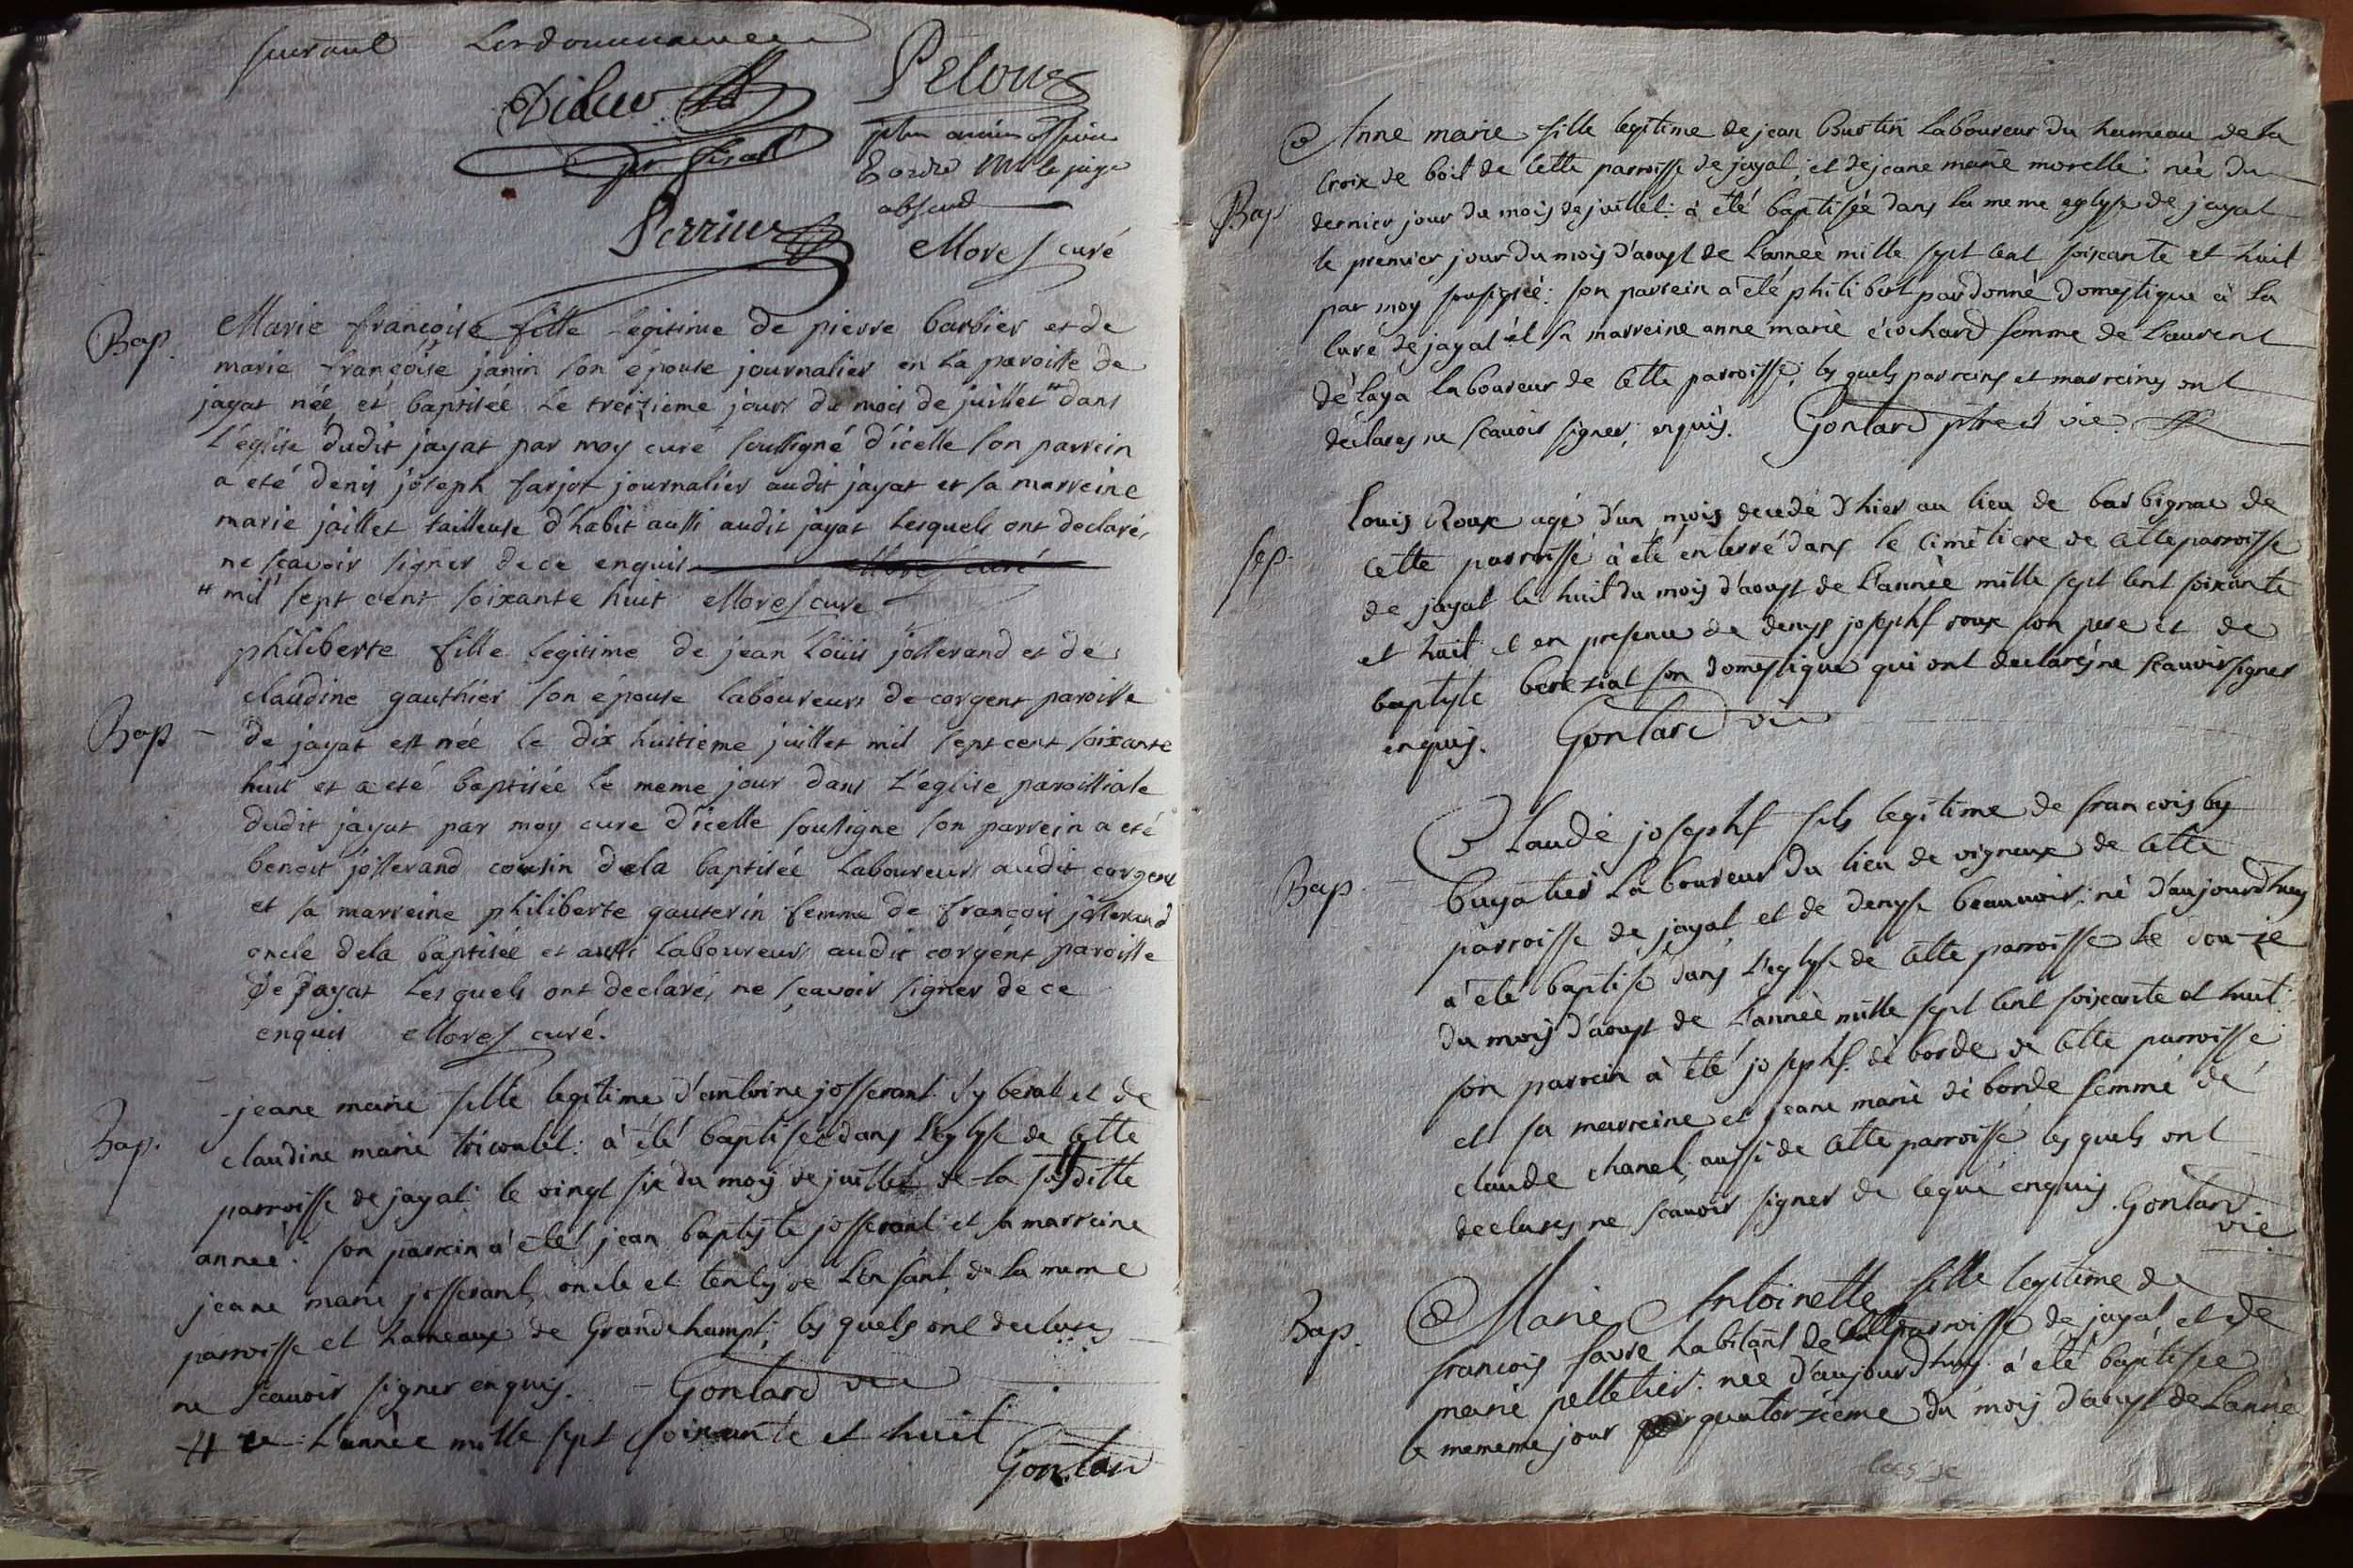 suivant Lordonnance
Peloux
plus ancien
Le juge
absend
Perrier
Morel curé
Bap.
Marie françoise fille Legitime de pierre barbier et de
marie françoise janin son épouse journalier en La paroisse de
jayat née et baptisée Le treizieme jour du mois de juillet # dans
L'église dudit jayat par moy curé soussigné d'icelle son parrein
a eté denis joseph farjot journalier audit jayat et sa marreine
marie jaillet tailleuse d'habit aussi audit jayat Lesquels ont declaré,
ne sçavoir signer de ce enquis Morel curé
# mil sept cent soixante huit Morel curé
Bap
philiberte fille Legitime de jean Loüis josserand et de
claudine gauthier son épouse laboureurs de corgent paroisse
de jayat est née Le dix huitieme juillet mil sept cent soixante
huit et a eté baptisée Le meme jour dans L'église paroissiale
dudit jayat par moy cure d'icelle soussigne son parrein a eté
benoit josserand cousin dela baptisée Laboureur audit corgent
et sa marreine philiberte gauterin femme de françois josserand
oncle dela baptisée et aussi Laboureur audit corgent paroisse
de jayat Lesquels ont declaré, ne sçavoir signer de ce
enquis Morel curé.
Bap.
jeane marie fille legitime d'antoine josserant d'y berat et de
claudine marie tricoulet: à été baptisée dans L'eglyse de cette
parroisse de jayat: le vingt six du moy de juillet de la susditte
année # son parrein à eté jean baptyste josserant et sa marreine
jeane marie josserant, oncle et tente de L'enfant de la meme
parroisse et hameaux de Grandchampt; les quels ont declarés
ne scavoir signer enquis. Gontard vic
# de L'année mille sept soixante et huit
Gontard
Bap
Anne marie fille legitime de jean Bustin Laboureur du hameau de la
Croix de boit de cette parroisse de jayat; et de jeane marie morelle: née du
dernier jour du mois de juillet: à été baptisée dans la meme eglyse de jayat
le premier jour du moys d'aoust de L'année mille sept cent soixante et huit
par moy sousigné: son parrein a été philibert pardonné domestique à la
cure de jayat et sa marreine anne marie écochard femme de Laurent
délaya laboureur de cette parroisse; les quels parreins et marreines ont
declarés ne scavoir signer; enquis. Gontard ptre et vic.
sep.
Louis Roux agé d'un mois decedé d'hier au lieu de barbignac de
cette parroisse à été enterré dans le cimetiere de cette parroisse
de jayat le huit du mois d'aoust de L'année mille sept cent soixante
et huit et en presence de denys josephf roux son pere et de
baptyste berezial son domestique qui ont declarés ne scauvoir signer
enquis. Gontard vic
Bap.
Claude josephf fils legitime de francois by
buyatier Laboureur du lieu de vigneux de cette
parroisse de jayat et de denyse beauvoir: né d'aujourdhuy
à été baptisé dans L'eglyse de cette parroisse le douze
du moys d'aoust de L'année mille sept cent soixante et huit:
son parrein à été josephf. dé borde de cette parroisse
et sa marreine et jeane marie dé borde femme de
claude chanel; aussi de cette parroisse les quels ont
declarés ne scavoir signer de ceque enquis. Gontard
vic.
Bap.
Marie Antoinette fille legitime de
francois favre habitant de cette parroisse de jayat et de
marie pelletier: née d'aujourdhuy à été baptisée
le mememe jour quatorzieme du moy d'aoust de L'année